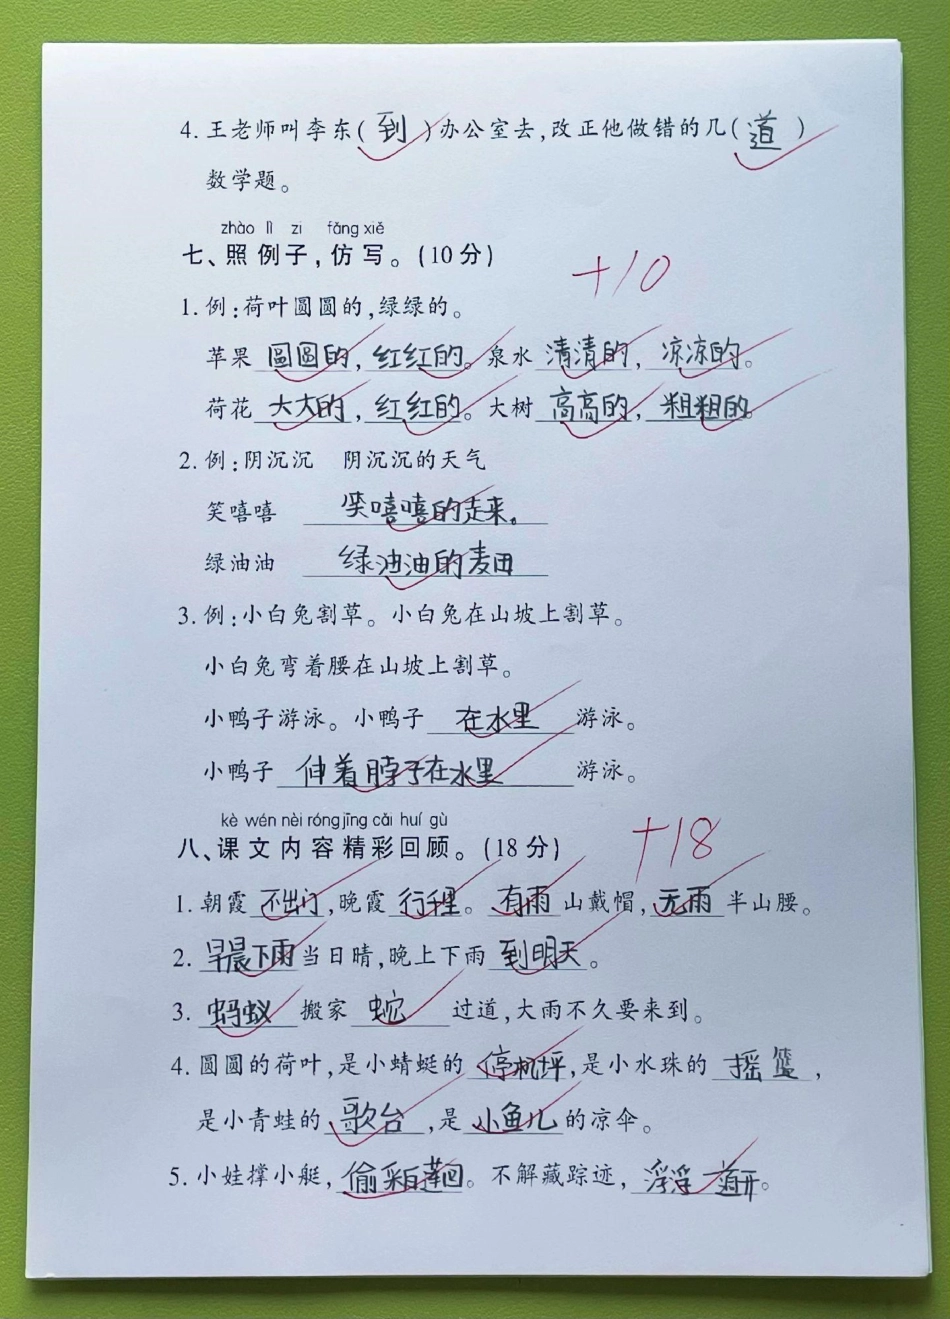 4. 王老师叫李东( 到 )办公室去,改正他做错的几( 道 )
数学题。
zhào lì zi fǎng xiě
七、照例子,仿写。(10分)
+10
1. 例:荷叶圆圆的,绿绿的。
苹果 圆圆的,红红的。泉水 清清的,凉凉的。
荷花 大大的,红红的。大树 高高的,粗粗的。
2. 例:阴沉沉 阴沉沉的天气
笑嘻嘻 笑嘻嘻的走来。
绿油油 绿油油的麦田
3. 例:小白兔割草。小白兔在山坡上割草。
小白兔弯着腰在山坡上割草。
小鸭子游泳。小鸭子 在水里 游泳。
小鸭子 伸着脖子在水里 游泳。
kè wén nèi róng jīng cǎi huí gù
八、课文内容精彩回顾。(18分)
+18
1. 朝霞 不出门,晚霞 行千里。有雨 山戴帽,无雨 半山腰。
2. 早晨下雨 当日晴,晚上下雨 到明天。
3. 蚂蚁 搬家 蛇 过道,大雨不久要来到。
4. 圆圆的荷叶,是小蜻蜓的 停机坪,是小水珠的 摇篮,
是小青蛙的 歌台,是 小鱼儿 的凉伞。
5. 小娃撑小艇,偷采白莲回。不解藏踪迹,浮 开。